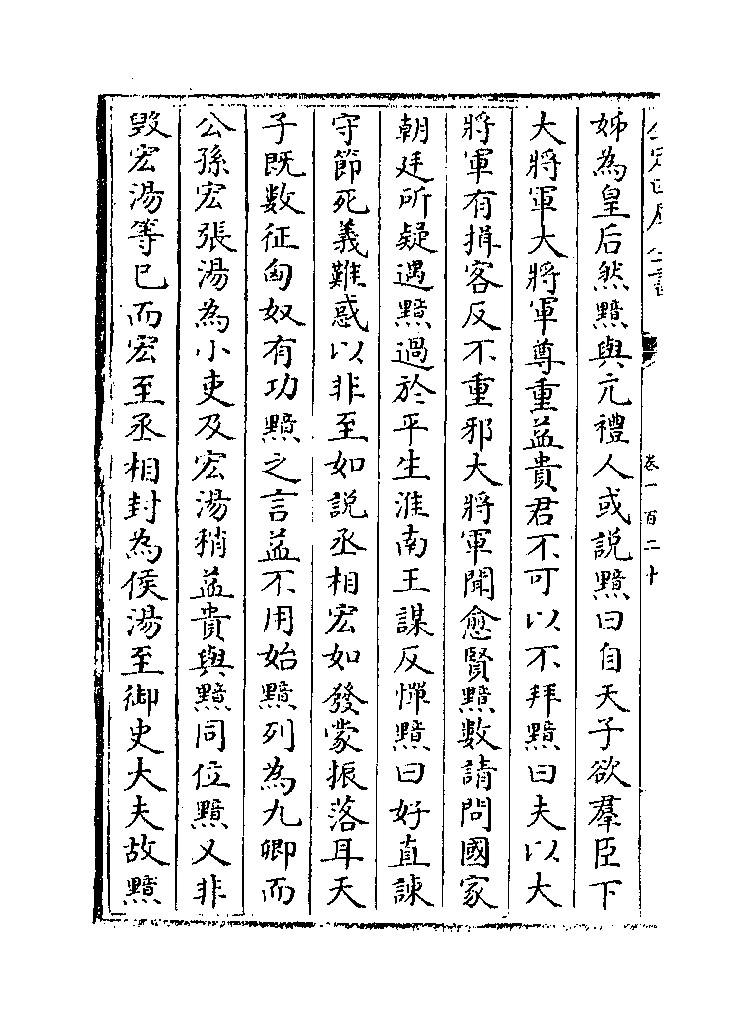 姊為皇后然黯與亢禮人或說黯曰自天子欲羣臣下
大將軍大將軍尊重益貴君不可以不拜黯曰夫以大
將軍有揖客反不重邪大將軍聞愈賢黯數請問國家
朝廷所疑遇黯過於平生淮南王謀反憚黯曰好直諫
守節死義難惑以非至如說丞相宏如發蒙振落耳天
子既數征匈奴有功黯之言益不用始黯列為九卿而
公孫宏張湯為小吏及宏湯稍益貴與黯同位黯又非
毀宏湯等已而宏至丞相封為侯湯至御史大夫故黯
卷一百二十